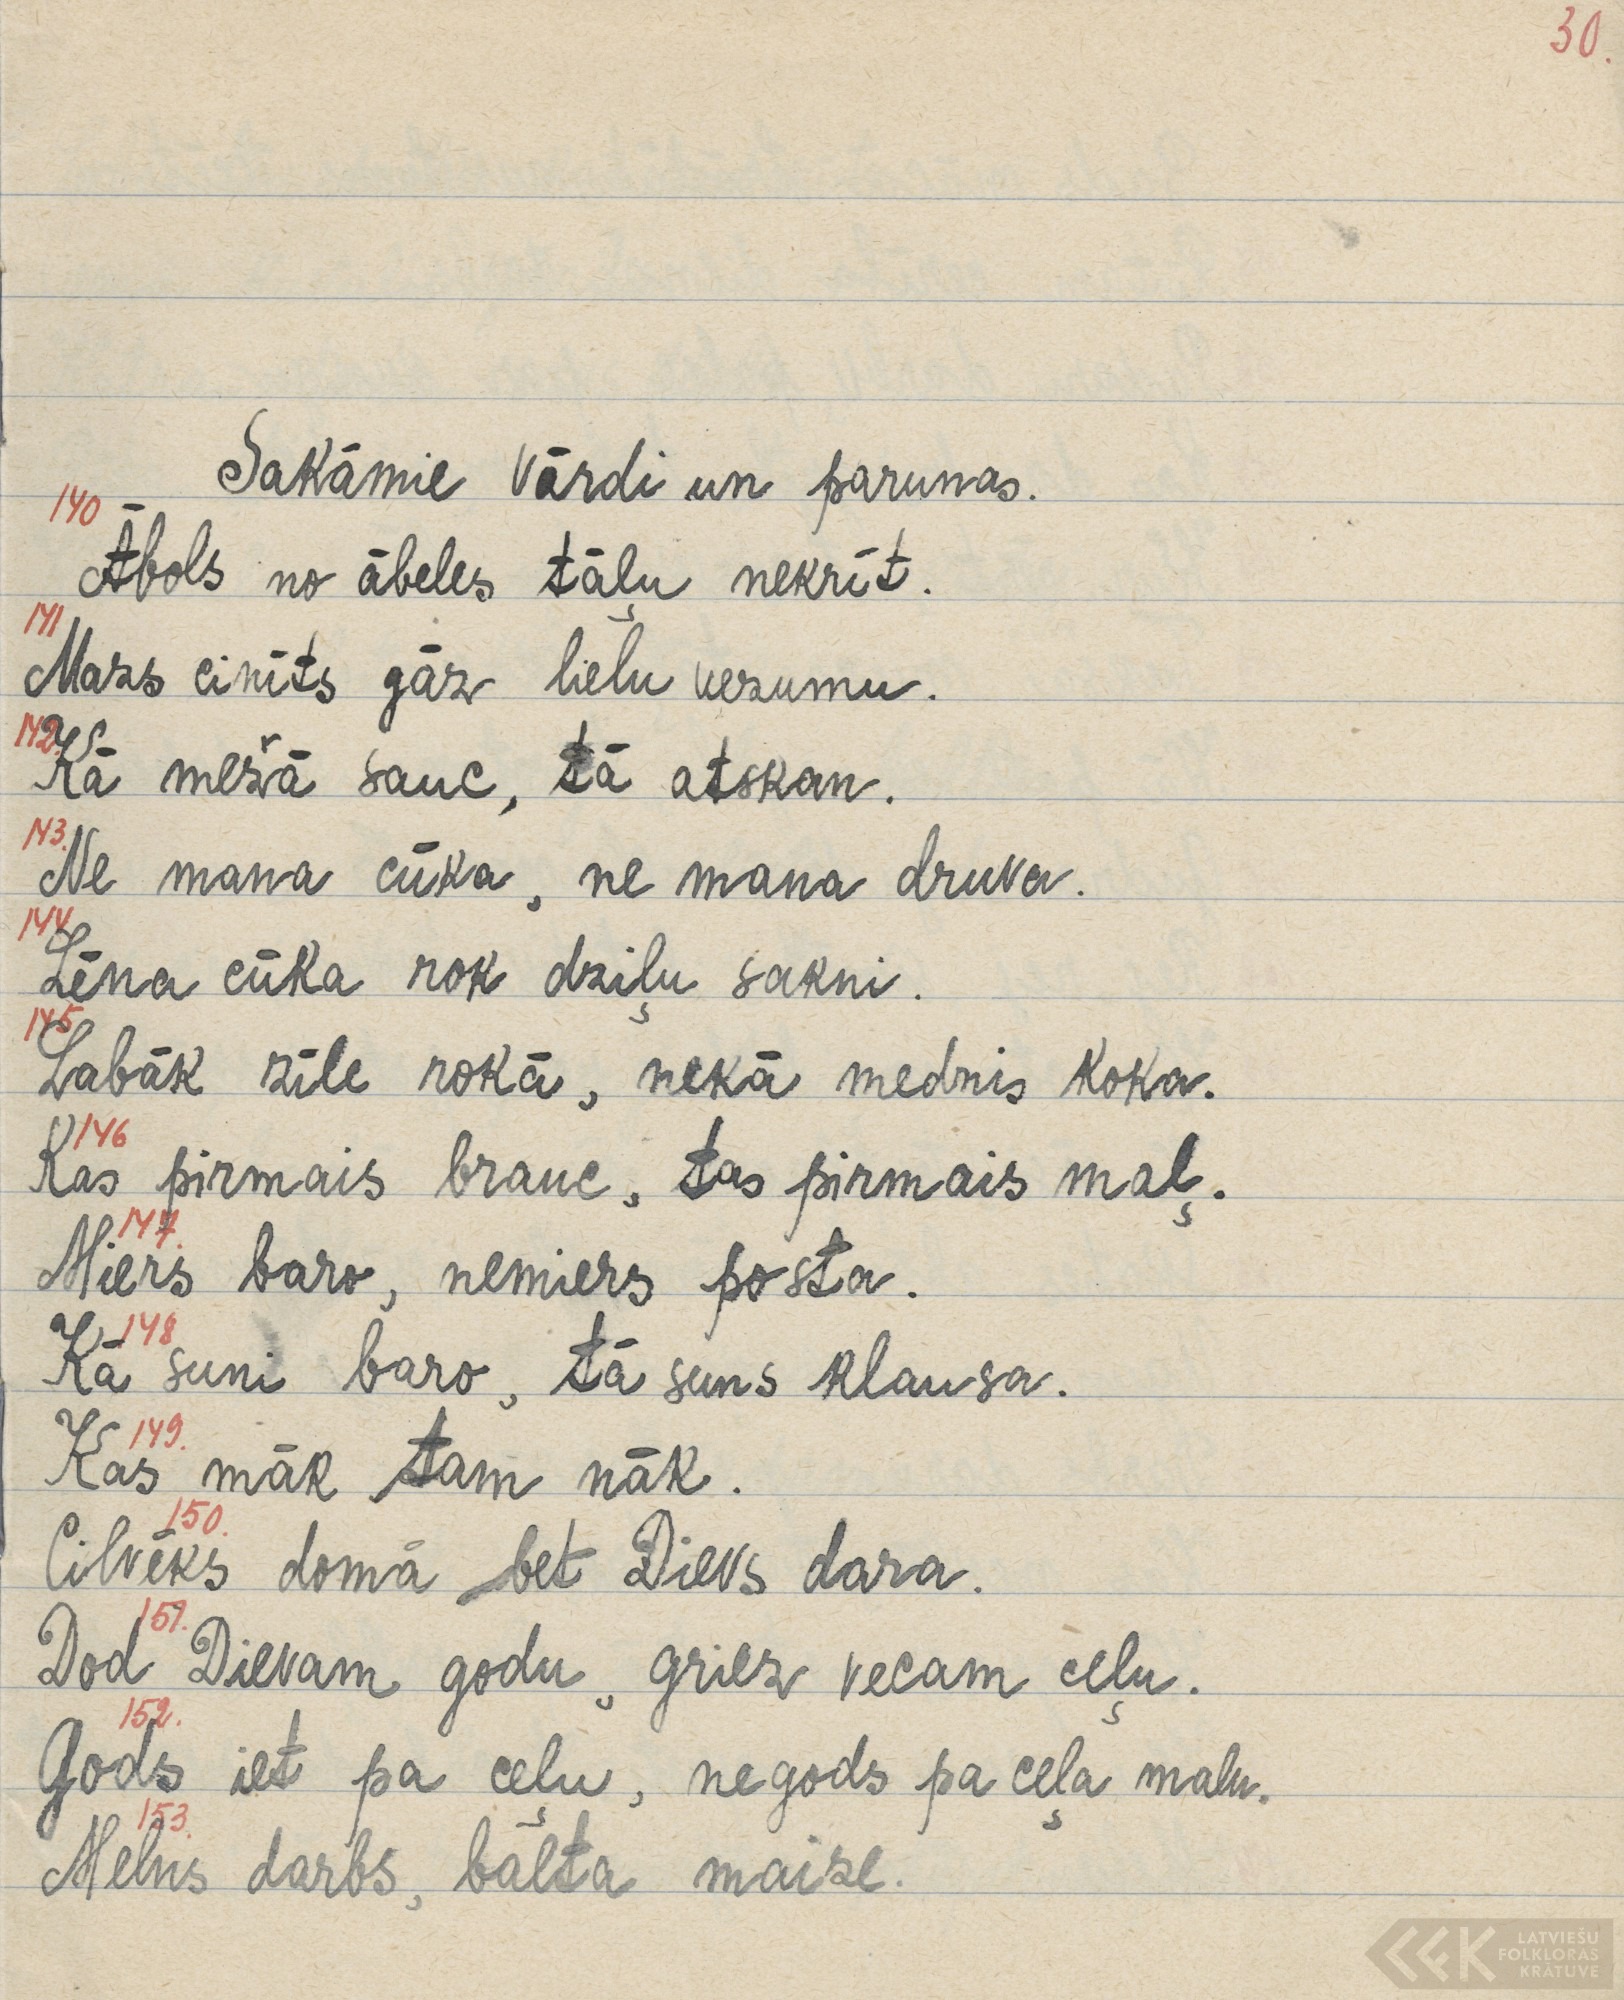 30.
Sakāmie vārdi un parunas.
140
Ābols no ābeles tāļu nekrīt.
141
Mazs cinīts gāz lielu vezumu.
142.
Kā mežā sauc, tā atskan.
143.
Ne mana cūka, ne mana druva.
144.
Lēna cūka rok dziļu sakni.
145
Labāk zīle rokā, nekā mednis koka.
146
Kas pirmais brauc, tas pirmais maļ.
147.
Miers baro, nemiers posta.
148
Kā suni baro, tā suns klausa.
149.
Kas māk tam nāk.
150.
Cilvēks domā bet Dievs dara.
151.
Dod Dievam godu, griez vecam ceļu.
152.
Gods iet pa ceļu, negods pa ceļa malu.
153.
Melns darbs, balta maize.
LATVIEŠU
FOLKLORAS
KRĀTUVE